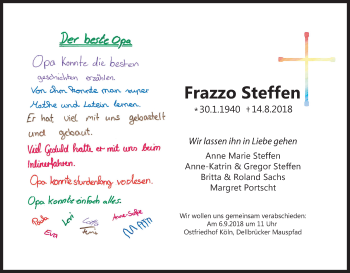 Der beste Opa
Opa konnte die besten
geschichten erzählen.
Von ihm konnte man super
Mathe und Latein lernen.
Er hat viel mit uns gebastelt
und gebaut.
Viel Geduld hatte er mit uns beim
Inlinerfahren.
Opa konnte stundenlang vorlesen.
Opa konnte einfach alles.
Eva
Frazzo Steffen
* 30.1.1940 + 14.8.2018
Wir lassen ihn in Liebe gehen
Anne Marie Steffen
Anne-Katrin & Gregor Steffen
Britta & Roland Sachs
Margret Portscht
Wir wollen uns gemeinsam verabschieden:
Am 6.9.2018 um 11 Uhr
Ostfriedhof Köln, Dellbrücker Mauspfad